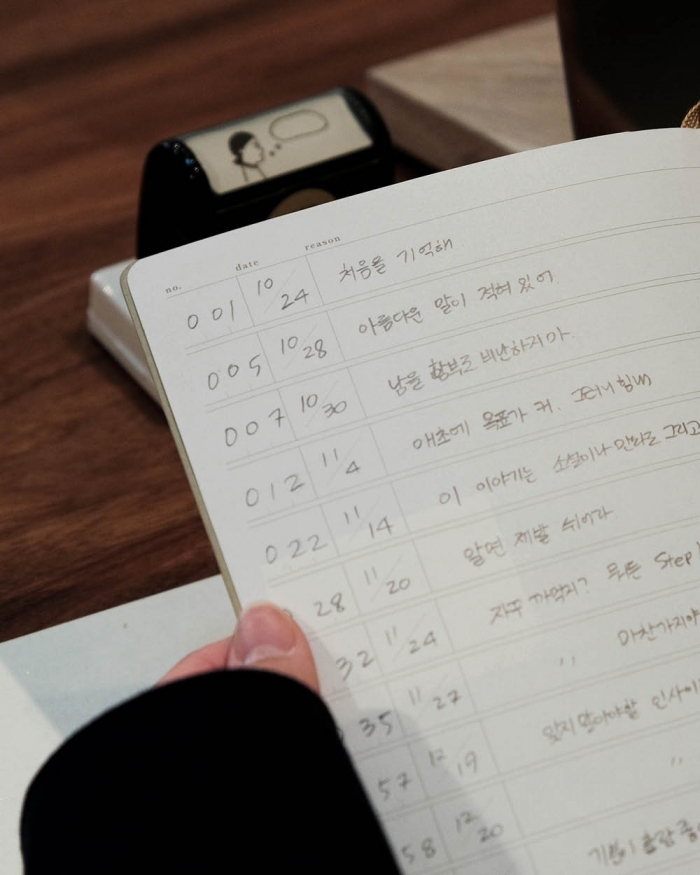 no. date reason
001 10/24 처음을 기억해
005 10/28 아름다운 말이 적혀 있어
007 10/30 남을 함부로 비난하지마
012 11/4 애초에 목표가 커. 그러니 힘내
022 11/14 이 이야기는 소설이나 만화로 그리고
28 11/20 알면 제발 쉬어라
32 11/24 자꾸 까먹지? 뭐든 Step
35 11/27 〃 마찬가지야
57 12/19 잊지말아야할 인사이
58 12/20 〃
기분이